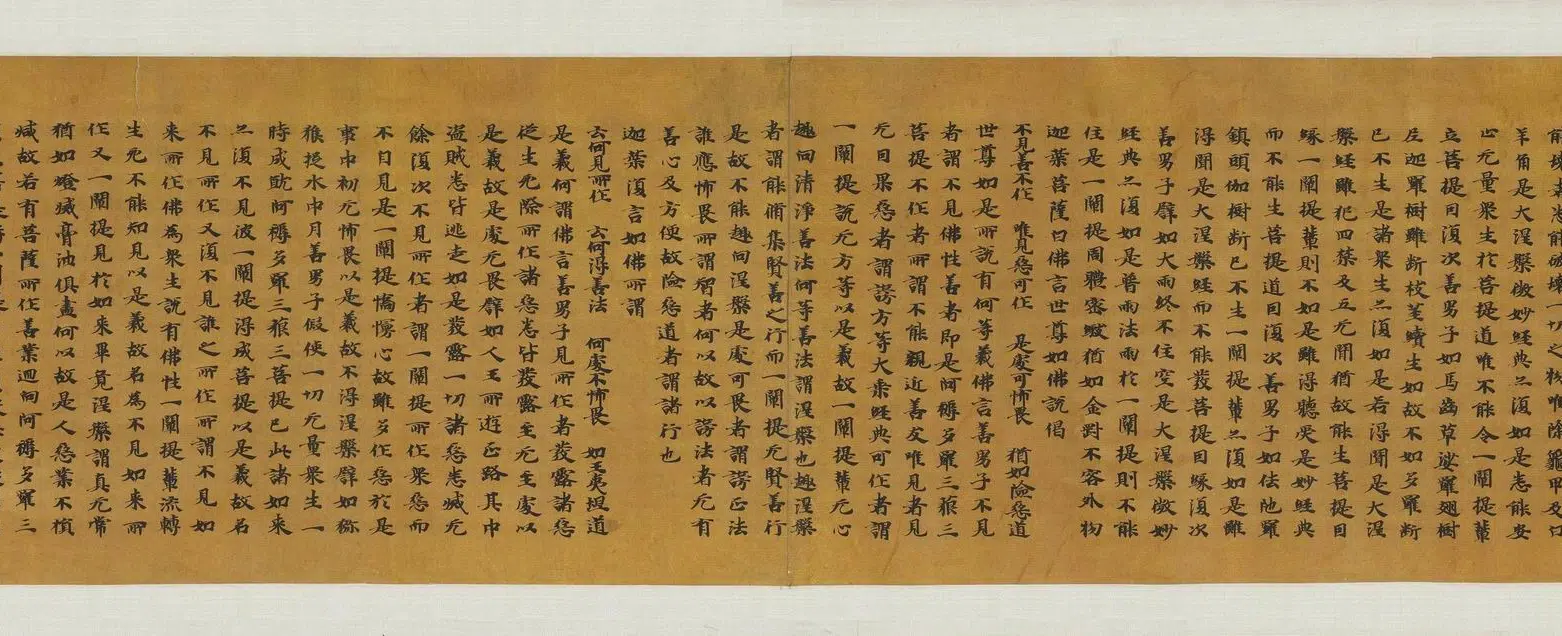 羊角是大涅槃微妙經典亦復如是悉能安
止无量眾生於菩提道唯不能令一闡提輩
立菩提因復次善男子如馬齒草娑羅翅樹
尼迦羅樹雖斷枝莖續生如故不如多羅斷
已不生是諸眾生亦復如是若得聞是大涅
槃經雖犯四禁及五无間猶故能生菩提因
緣一闡提輩則不如是雖得聽受是妙經典
而不能生菩提道因復次善男子如佉陀羅
鎮頭伽樹斷已不生一闡提輩亦復如是雖
得聞是大涅槃經而不能發菩提因緣復次
善男子譬如大雨終不住空是大涅槃微妙
經典亦復如是普雨法雨於一闡提則不能
住是一闡提周體密緻猶如金剛不容外物
迦葉菩薩白佛言世尊如佛說偈
不見善不作 唯見惡可作 是處可怖畏 猶如險惡道
世尊如是所說有何等義佛言善男子不見
者謂不見佛性善者即是阿耨多羅三藐三
菩提不作者所謂不能親近善友唯見者見
无因果惡者謂謗方等大乘經典可作者謂
一闡提說无方等以是義故一闡提輩无心
趣向清淨善法何等善法謂涅槃也趣涅槃
者謂能脩集賢善之行而一闡提无賢善行
是故不能趣向涅槃是處可畏者謂謗正法
誰應怖畏所謂智者何以故以謗法者无有
善心及方便故險惡道者謂諸行也
迦葉復言如佛所謂
云何見所作 云何得善法 何處不怖畏 如王夷坦道
是義何謂佛言善男子見所作者發露諸惡
從生死際所作諸惡悉皆發露至无至處以
是義故是處无畏譬如人王所遊正路其中
盜賊悉皆逃走如是發露一切諸惡悉滅无
餘復次不見所作者謂一闡提所作眾惡而
不自見是一闡提憍慢心故雖多作惡於是
事中初无怖畏以是義故不得涅槃譬如獼
猴捉水中月善男子假使一切无量眾生一
時成就阿耨多羅三藐三菩提已此諸如來
亦復不見彼一闡提得成菩提以是義故名
不見所作又復不見誰之所作所謂不見如
來所作佛為眾生說有佛性一闡提輩流轉
生死不能知見以是義故名為不見如來所
作又一闡提見於如來畢竟涅槃謂真无常
猶如燈滅膏油俱盡何以故是人惡業不損
減故若有菩薩所作善業迴向阿耨多羅三